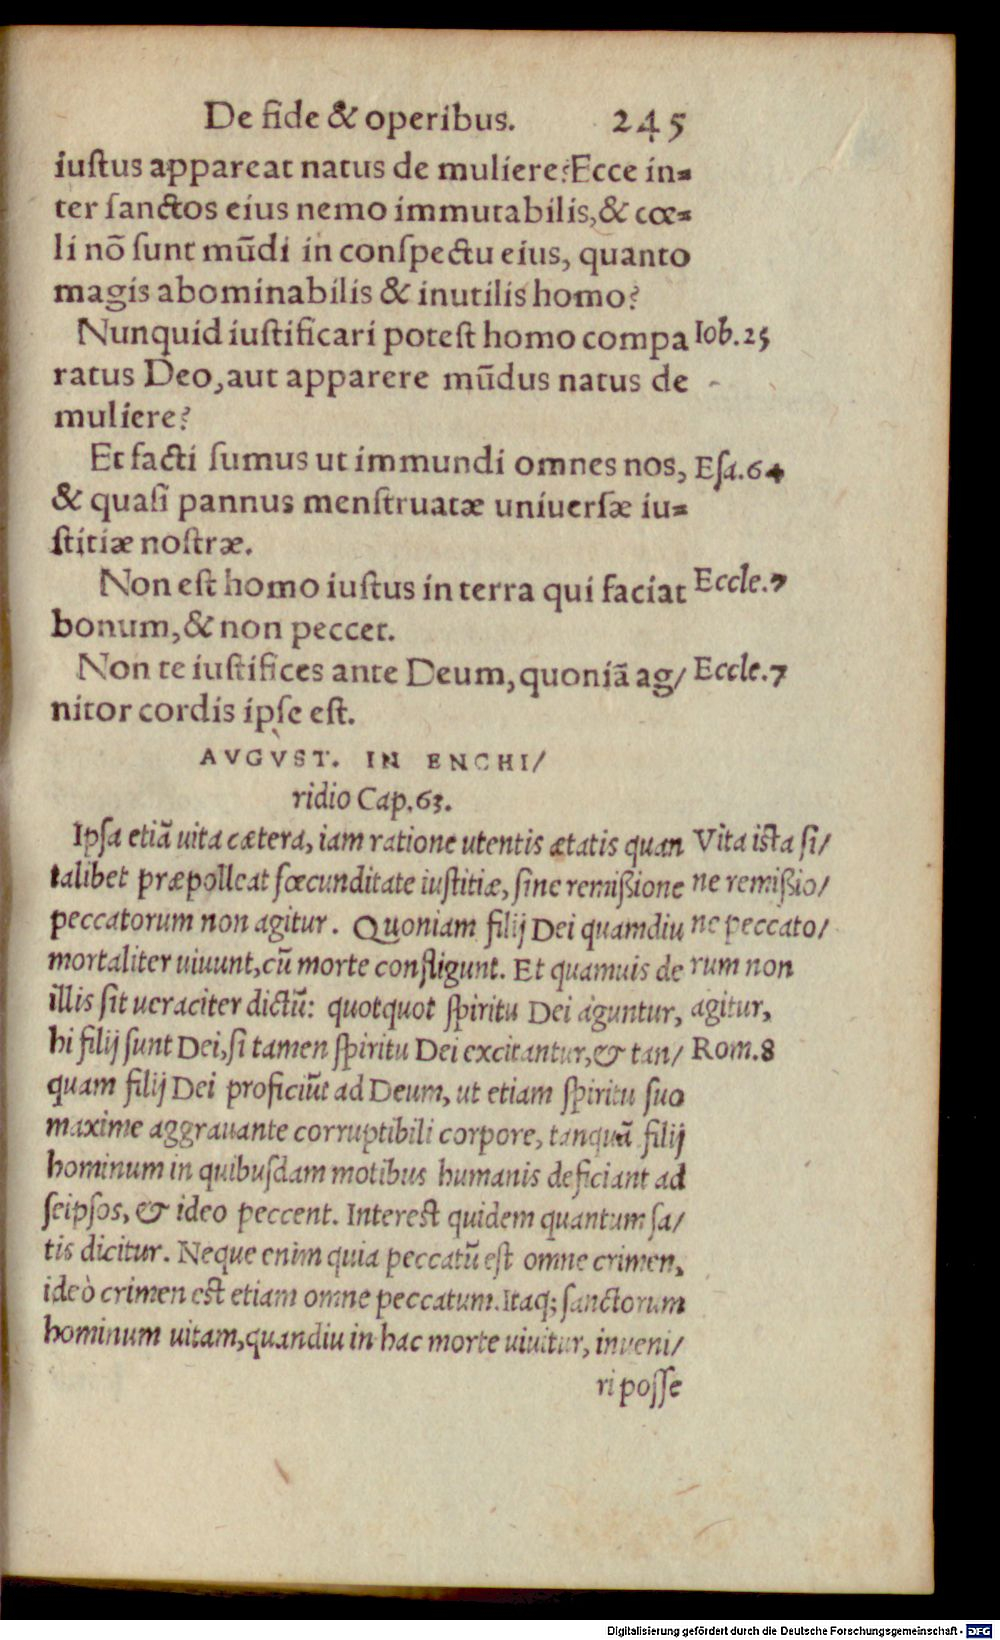 De fide & operibus. 245
iuſtus appareat natus de muliere? Ecce in=
ter ſanctos eius nemo immutabilis, & cœ=
li nõ ſunt mũdi in conſpectu eius, quanto
magis abominabilis & inutilis homo?
Nunquid iuſtificari poteſt homo compa Iob.25
ratus Deo, aut apparere mũdus natus de
muliere?
Et facti ſumus ut immundi omnes nos, Eſa.64
& quaſi pannus menſtruatæ uniuerſæ iu=
ſtitiæ noſtræ.
Non eſt homo iuſtus in terra qui faciat Eccle.7
bonum, & non peccet.
Non te iuſtifices ante Deum, quoniã ag/ Eccle.7
nitor cordis ipſe eſt.
AVGVST. IN ENCHI/
ridio Cap.63.
Ipſa etiã uita cætera, iam ratione utentis ætatis quan Vita iſta ſi/
talibet præpolleat fœcunditate iuſtitiæ, ſine remißione ne remißio/
peccatorum non agitur. Quoniam filij Dei quamdiu ne peccato/
mortaliter uiuunt, cũ morte confligunt. Et quamuis de rum non
illis ſit ueraciter dictũ: quotquot ſpiritu Dei aguntur, agitur,
hi filij ſunt Dei, ſi tamen ſpiritu Dei excitantur, & tan/ Rom.8
quam filij Dei proficiũt ad Deum, ut etiam ſpiritu ſuo
maxime aggrauante corruptibili corpore, tanquã filij
hominum in quibuſdam motibus humanis deficiant ad
ſeipſos, & ideo peccent. Intereſt quidem quantum ſa/
tis dicitur. Neque enim quia peccatũ eſt omne crimen,
ideò crimen eſt etiam omne peccatum. Itaq; ſanctorum
hominum uitam, quandiu in hac morte uiuitur, inueni/
ri poſſe
Digitalisierung gefördert durch die Deutsche Forschungsgemeinschaft - DFG